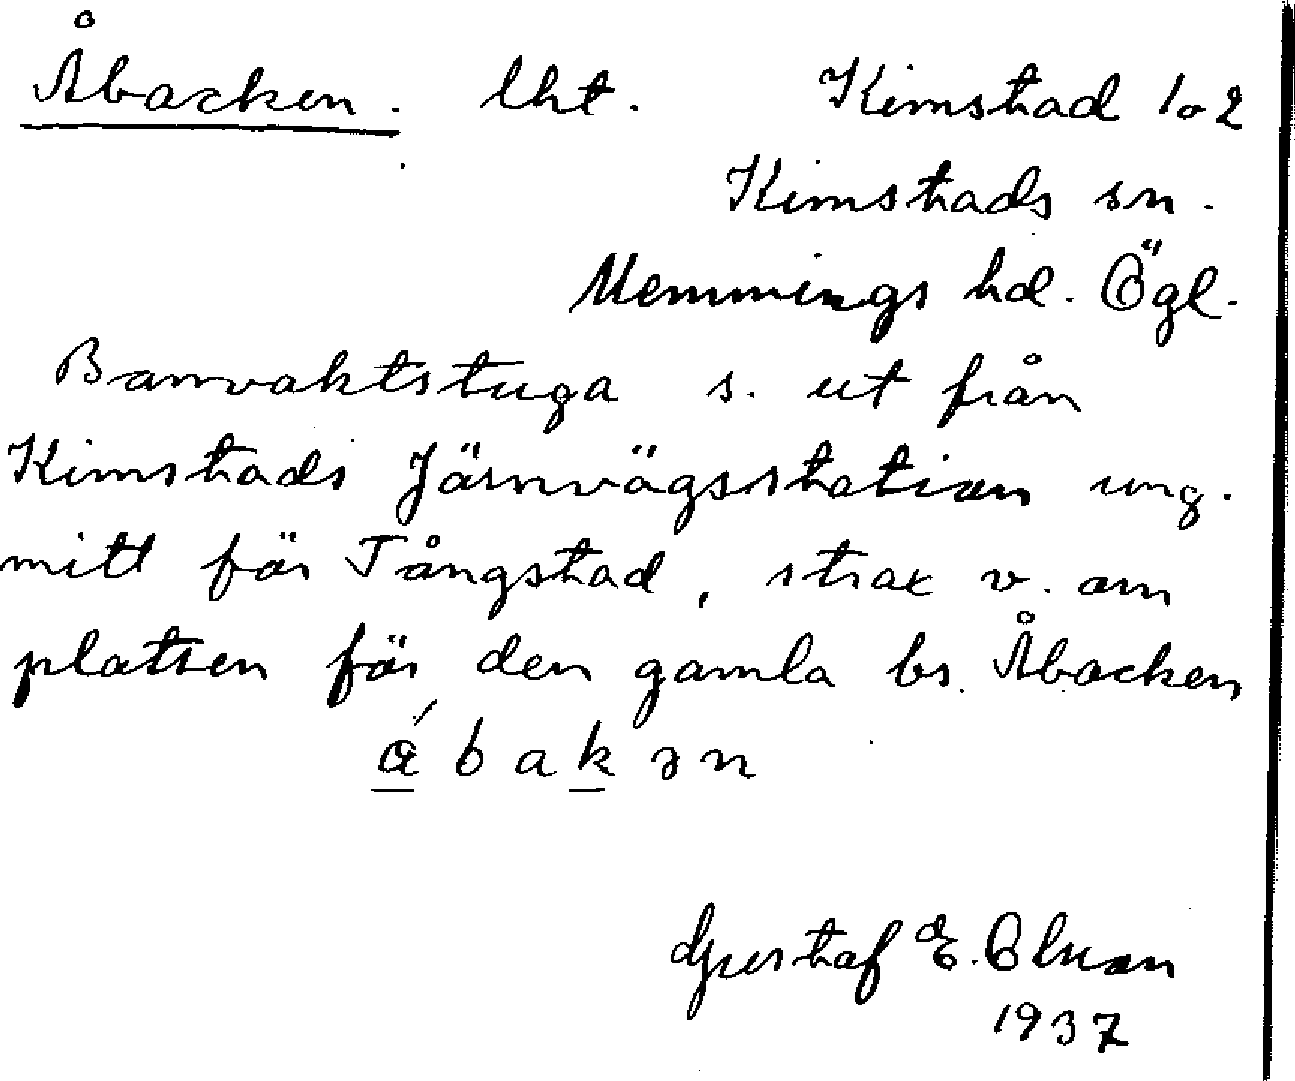 Åbacken. lht. Kimstad 1o2
Kimstads sn.
Memmings hd. Ögl.
Banvaktstuga s. ut från
Kimstads Järnvägsstation ung.
mitt för Tångstad, strax v. om
platsen för den gamla bs. Åbacken
bakən
Gustaf E. Olson
1937